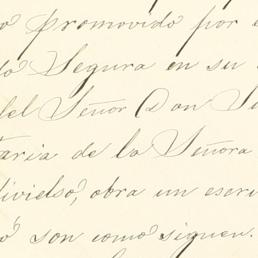 ó promovido por e
do Segura en su
del Señor Don Se
taria de la Señora
dividso, obra un escri
ó son como siguen.